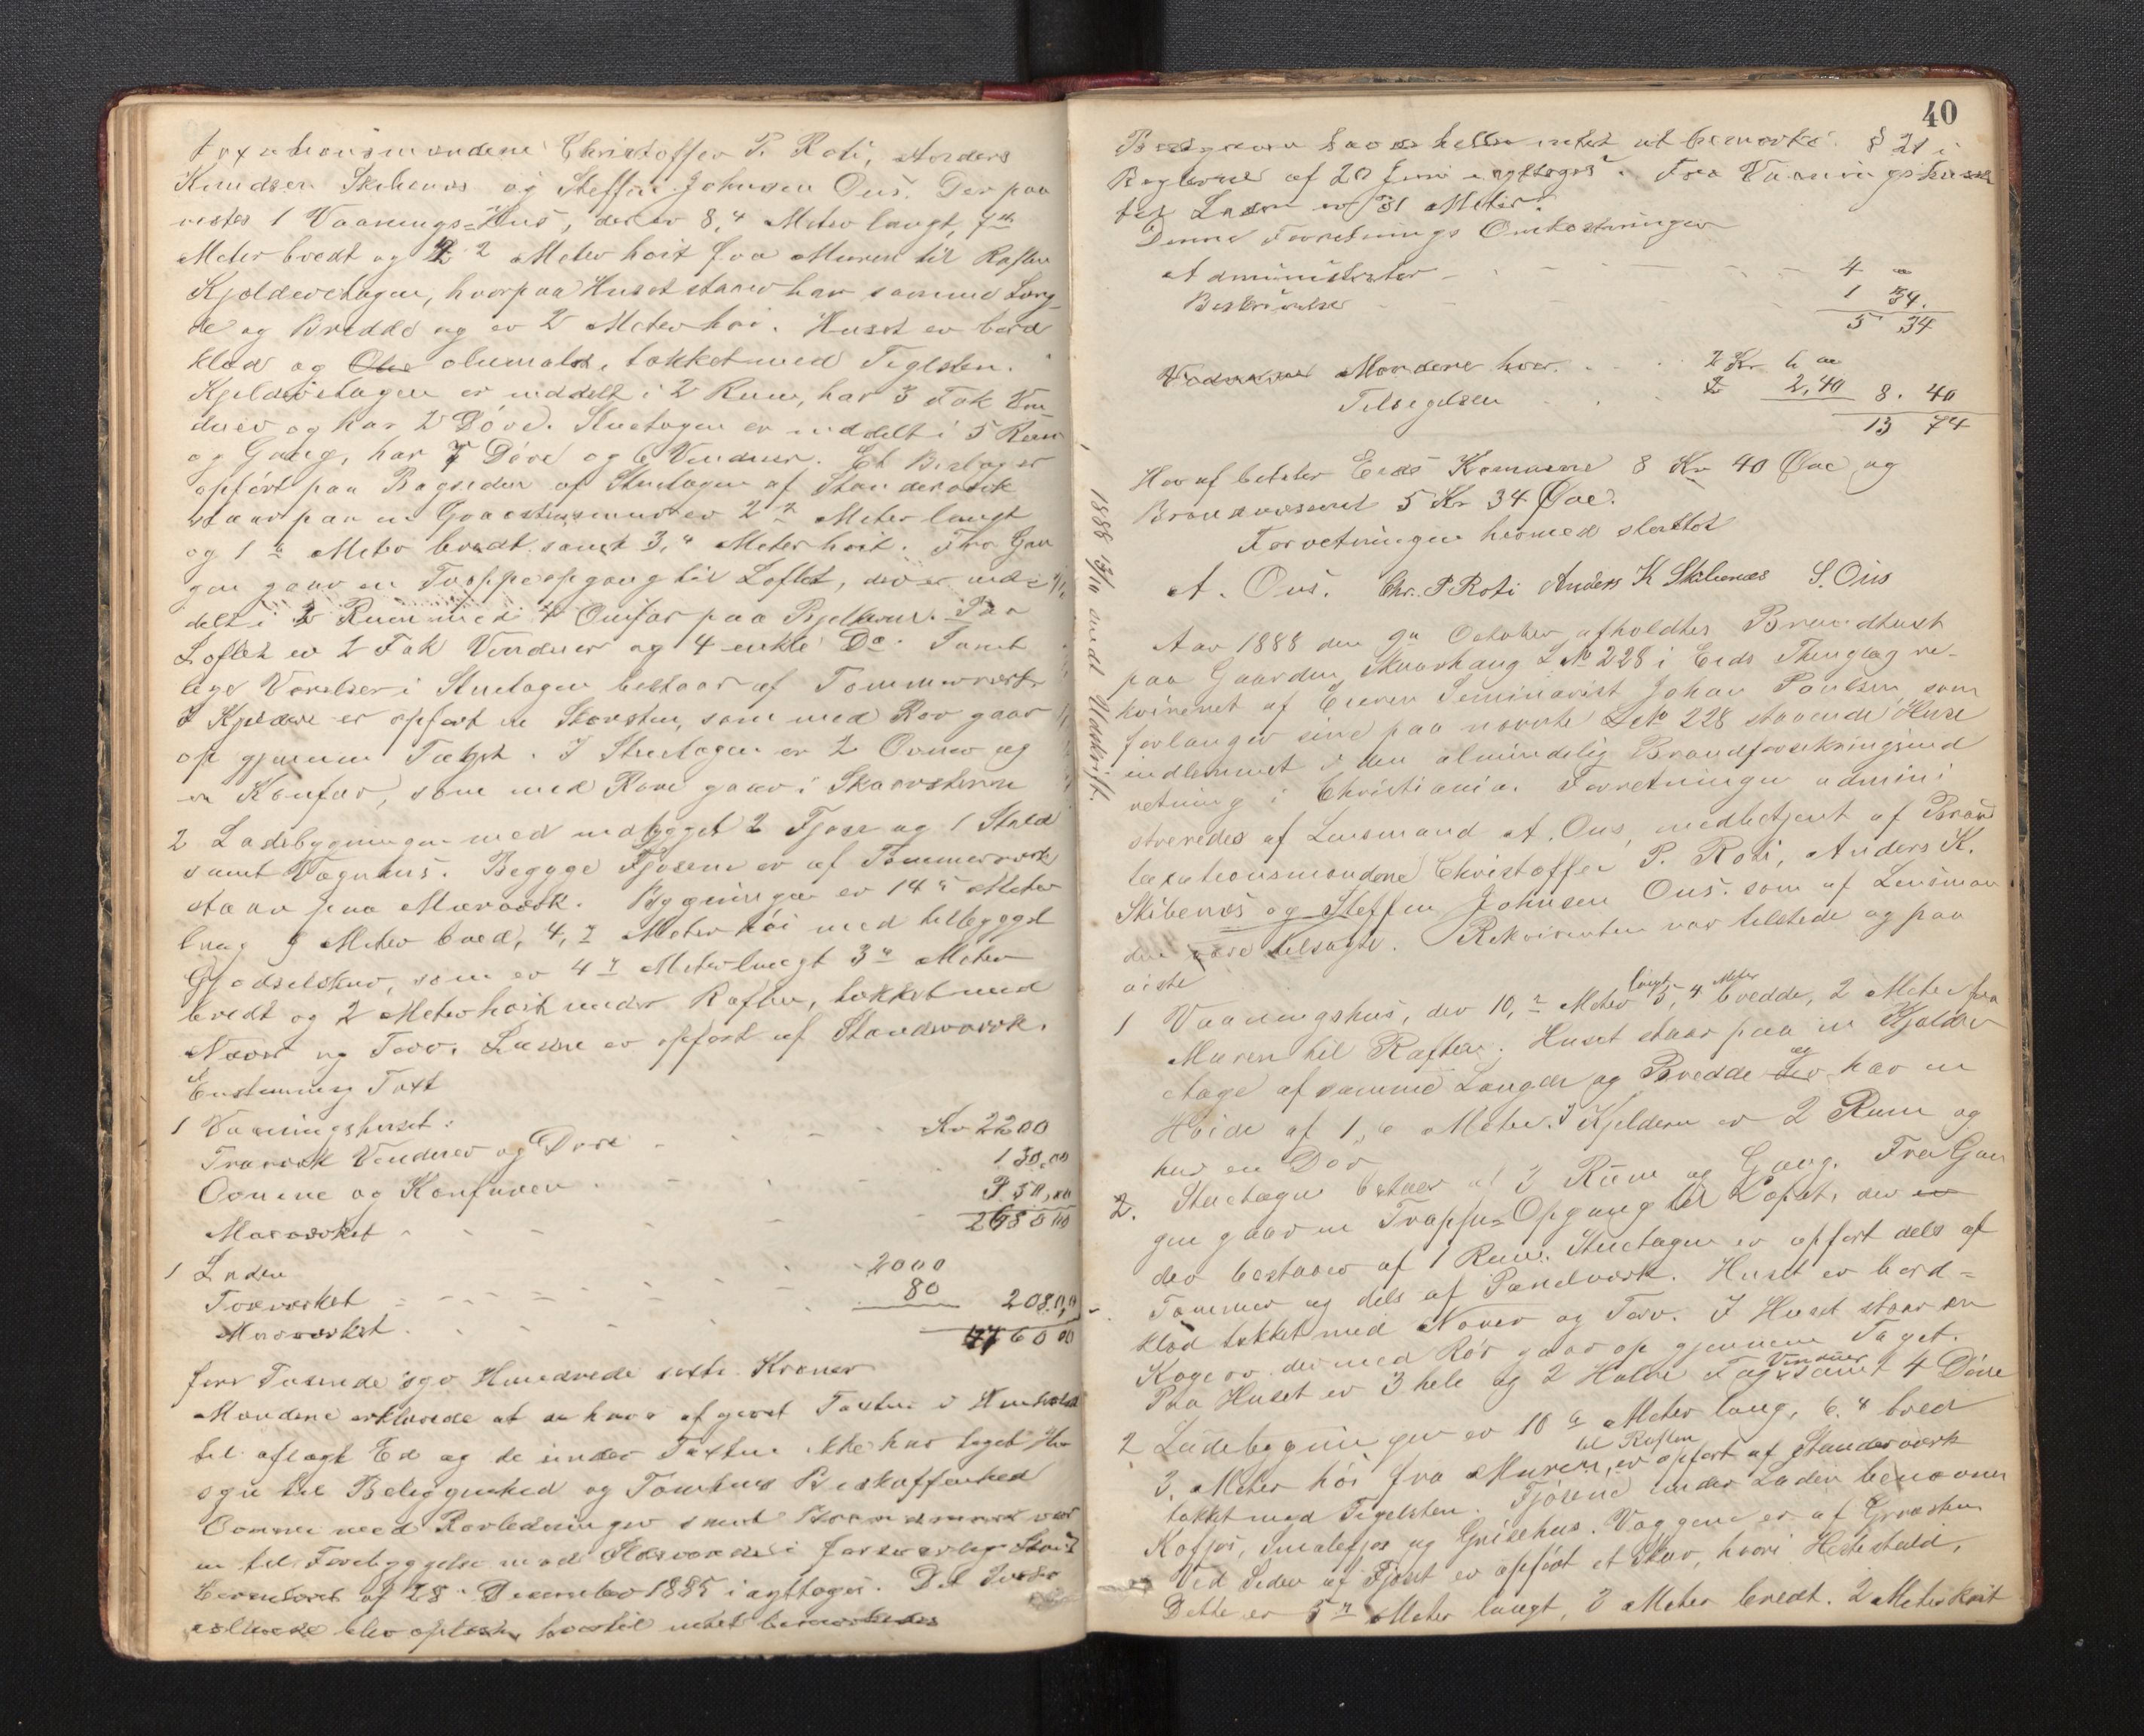 taxationsmændene Christoffer P. Roti, Anders
Knudsen Skibenes og Steffen Johnsen Ous. Der paa
vistes 1 Vaanings=Hus, der er 8,4 Meter langt, 7
Meter bredt og 2 Meter høit fra Muren til Raften
Kjelderetagen, hvorpaa Huset staaer har samme Læng-
de og Bredde og er 2 Meter høi. Huset er bord
klæd og oliemalet, tækket med Teglsten.
Kjelderetagen er inddelt i 2 Rum, har 3 Fak Vin-
duer og har 2 Døre. Stuetagen er inddelt i 5 Rum
og Gang, har 7 Døre og 6 Vinduer. Et Bislag er
opført paa Bagsiden af Stuetagen af Standerværk
staar paa en Graastensmur er 2 Meter langt
og 1 Meter bredt samt 3, Meter høit. Fra Gan
gen gaar en Trappeopgang til Loftet, der er ind-
delt i 2 Rum med 4 Omfar paa Bjelkerne. Paa
Loftet er 2 Fak Vinduer og 4 enkle Do. Samt
lige Værelser i Stuetagen bestaar af Tømmerværk
I Kjelderen er opført en Skorsten, som med Rør gaar
op gjennem Taget. I Stuetagen er 2 Ovner og
en Komfur, som med Røre gaar i Skaarstenen
2 Ladebygningen med indbygget 2 Fjøse og 1 Stald
samt Vognhus. Begge Fjøsene er af Tømmerværk
staar paa Murværk. Bygningen er 14 Meter
lang 9 Meter bred, 4, Meter høi med tilbygget
Gjødselskur, som er 4 Meter langt 3 Meter
bredt og 2 Meter høit under Raften, tækket med
Næver og Torv. Laden er opført af Standerværk.
Enstemmig Taxt
1 Vaaningshuset:
Træværk Vinduer og Døre Kr 2200
Ovnene og Komfuren 130,00
Murværket 350,00
2680 00
1 Laden
Træværket 2000
Murværket 80 2080,0
4760 00
fire Tusende syv Hundrede sexti Kroner
Mændene erklærede at de have afgivet Taxten i Henhold
til aflagt Ed og de under Taxten ikke har taget Hen
syn til Beliggenhed og Tomtens Beskaffenhed
Ovnene med Rørledninger samt Brandmure var
en til Forebyggelse mod Ildsvaade i forsvarlig Stand
Cirkulæret af 28 December 1885 iagttages. Det
blev oplæst, hvortil intet bemærkedes
40
havde heller intet at bemærke. § 21 i
Reglerne af 20 Juni iagttages. Fra Vaaningshuset
til Laden er 31 Meter.
Denne Forretnings Omkostninger
Administrator 4 "
Beskrivelse 1 34.
5 34
Mændene hver 2 Kr 6 "
Tilsigelsen 2,40 8. 40
13 74
Heraf betaler Eids Kommune 8 Kr 40 Øre og
Brandvæsenet 5 Kr 34 Øre.
Forretningen hermed sluttet
A. Ous. Chr. P Roti Anders K Skibenæs S. Ous
1888 13/10 Udskrift.
Aar 1888 den 9de October afholdtes Brandtaxt
paa Gaarden Skaarhaug L No 228 i Eids Thinglag re-
kvireret af Eieren Seminarist Johan Poulsen som
forlanger sine paa nævnte L No 228 staaende Huse
indlemmet i den almindelig Brandforsikringsind
retning i Christiania. Forretningen admini
streredes af Lensmand A. Ous, medbetjent af Brand
taxationsmændene Christoffer P. Roti, Anders K.
Skibenes og Steffen Johnsen Ous. som af Lensman
den vare tilsagte. Rekvirenten var tilstede og paa
viste
1 Vaaningshus, der 10, Meter langt 5,4 Meter bredde, 2 Meter fra
Muren til Raften. Huset staar paa en Kjelder
etage af samme Længde og Bredde og har en
Høide af 1,6 Meter. I Kjelderen er 2 Rum og
har en Dør
2. Stuetagen bestaaer af 3 Rum og Gang. Fra Gan
gen gaar en Trappe=Opgang til Loftet, der
der bestaaer af 1 Rum. Stuetagen er opført dels af
Tømmer og dels af Panelværk. Huset er bord=
klæd tækket med Næver og Torv. I Huset staar en
Kogeov. der med Rør gaar op gjennem Taget.
Paa Huset er 3 hele og 2 Halve Fag Vinduer samt 4 Døre
2 Ladebygningen er 10 Meter lang, 6.4 bred
3. Meter høi fra Muren til Raften, er opført af Standerværk
tækket med Tegelsten. Fjøsene under Laden benævnes
Kofjøs, Smalefjøs og Grisehus. Væggene er af Graasten
Ved Siden af Fjøset er opført et Skur, hvori Hestestald,
Dette er 5 Meter langt, 3 Meter bredt. 2 Meter høit